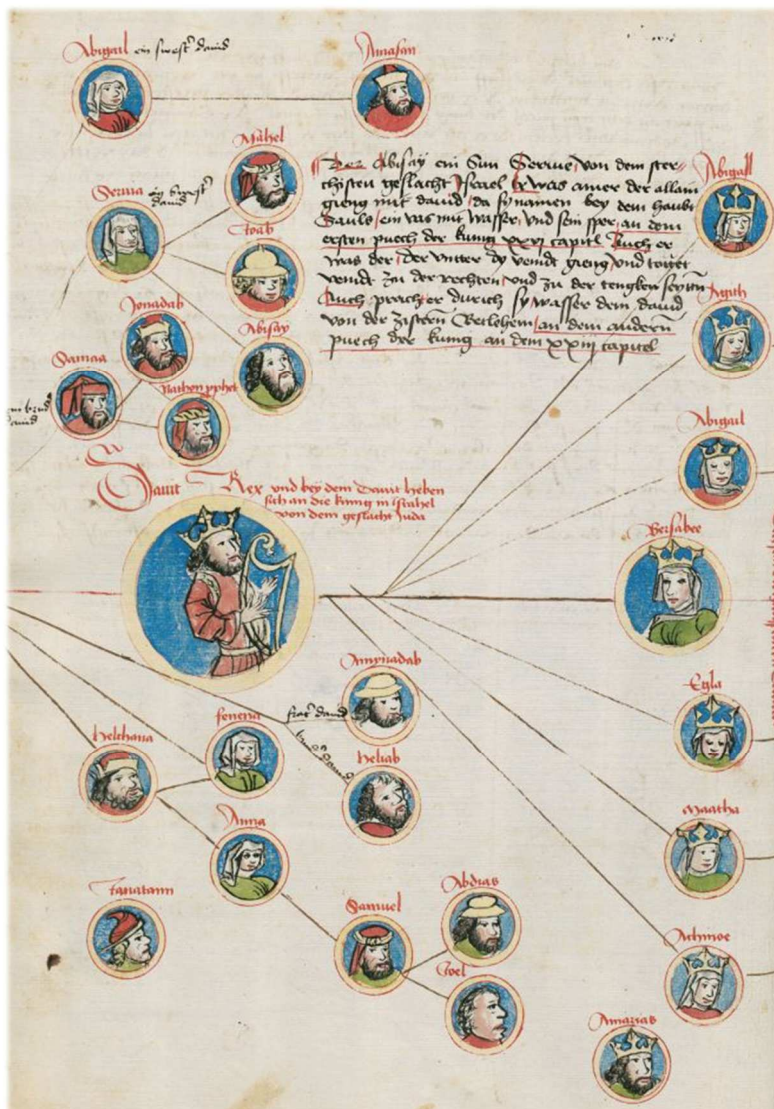 Abigail ein swest' david
Amasan
Asahel
Seruia ein swest' david
Joab
Jonadab
Abisay
Samaa
Nathen pphet
Der Abisay ein Sun Serrue von dem ster
chisten geslacht Israel Er was ainer der allain
gieng mit david da sy namen bey dem haubt
Sauls ein vas mit wasser und sein sper an dem
ersten puech der kung xxvj capitl Auch er
was der der unter dy veindt gieng und totet
veindt zu der rechten und zu der tengken seytn
Auch prach er durich sy wasser dem david
von der zistern Betlehem an dem andern
puech der kung an dem xxiij capitel
Abigall
Agith
Abigail
Davit Rex und bey dem Davit heben
sich an die kung in israhel
von dem geslacht Juda
Bersabee
Amynadab
frat' david
Egla
Helchana
fenena
Heliab
Maatha
Anna
Samuel
Abdias
Joel
Achinoe
Amazias